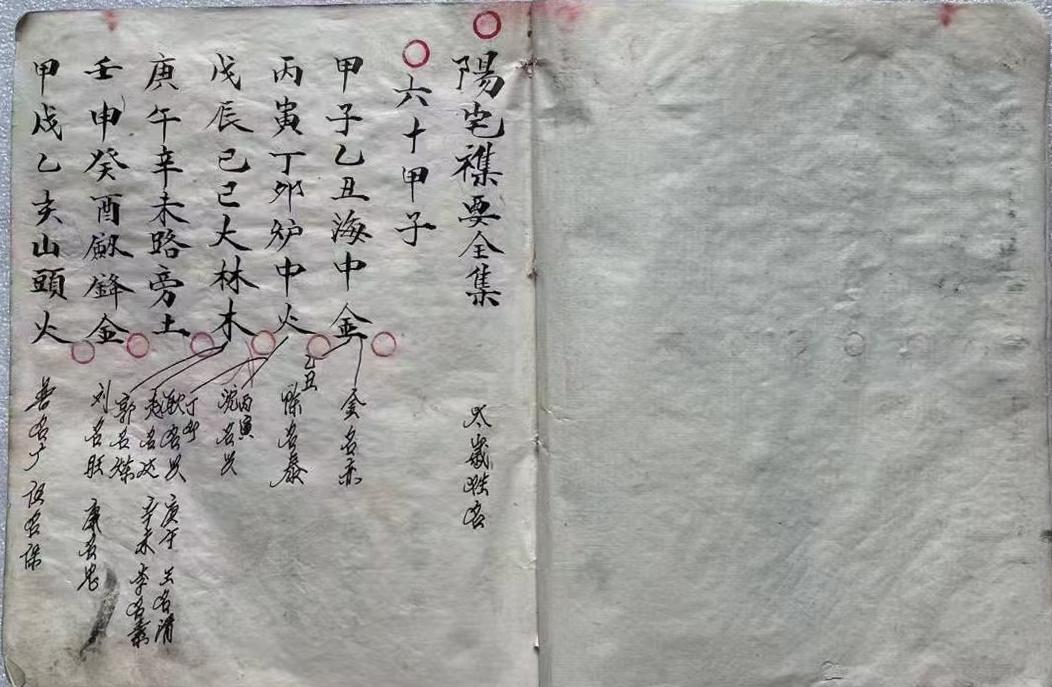 陽宅襍要全集
太歲姓名
六十甲子
甲子乙丑海中金
金名赤
乙丑
陳名泰
丙寅丁卯炉中火
丙寅
沈名兴
戊辰己巳大林木
丁卯
耿名兴
趙名达
郭名燦
庚午辛未路旁土
庚午 王名清
辛未 李名素
壬申癸酉劍鋒金
刘名旺
康名忠
甲戌乙亥山頭火